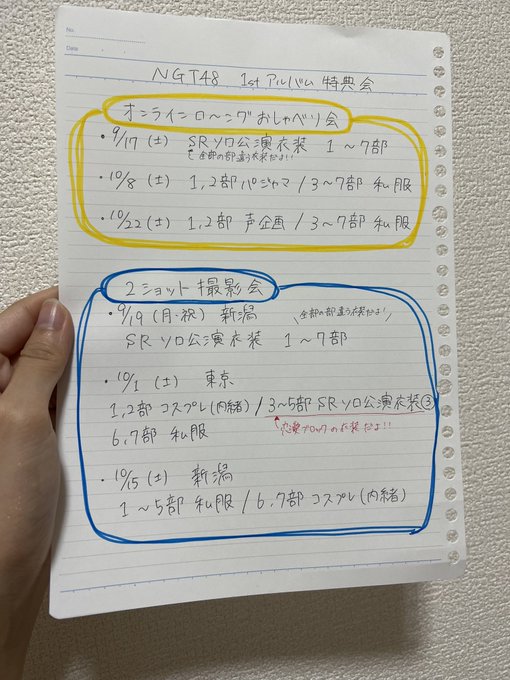 No.
Date
NGT48 1st アルバム 特典会
オンラインローングおしゃべり会
・9/17(土) SRソロ公演衣装 1〜7部
全部の部違う衣装だよ!!
・10/8(土) 1,2部パジャマ/3〜7部 私服
・10/22(土) 1,2部 声企画/3〜7部 私服
2ショット撮影会
・9/19(月・祝) 新潟
\全部の部違う衣装だよ!/
SRソロ公演衣装 1〜7部
・10/1(土) 東京
1,2部 コスプレ(内緒)/3〜5部SRソロ公演衣装③
6,7部 私服
恋愛ブロックの衣装だよ!!
・10/15(土) 新潟
1〜5部 私服/6,7部 コスプレ(内緒)